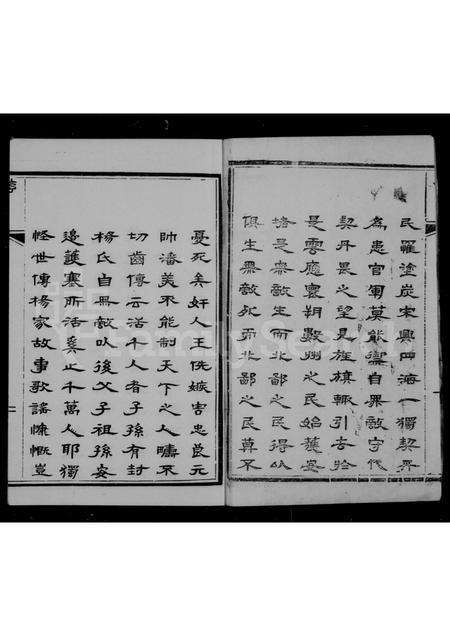 民羅塗炭宋興四海一獨契丹
為患官軍莫能禦自無敵守代
契丹畏之望見旌旗輒引去於
是雲應寰朔數州之民始獲安
堵是無敵生而北鄙之民得以
俱生無敵死而北鄙之民莫不
憂死矣奸人王侁嫉害忠良元
帥潘美不能制天下之人嚅不
切齒傳云活千人者子孫有封
楊氏自無敵以後父子祖孫安
邊護寒所活奚止千萬人耶獨
怪世傳楊家故事歌謠慷慨豈
FamilySearch